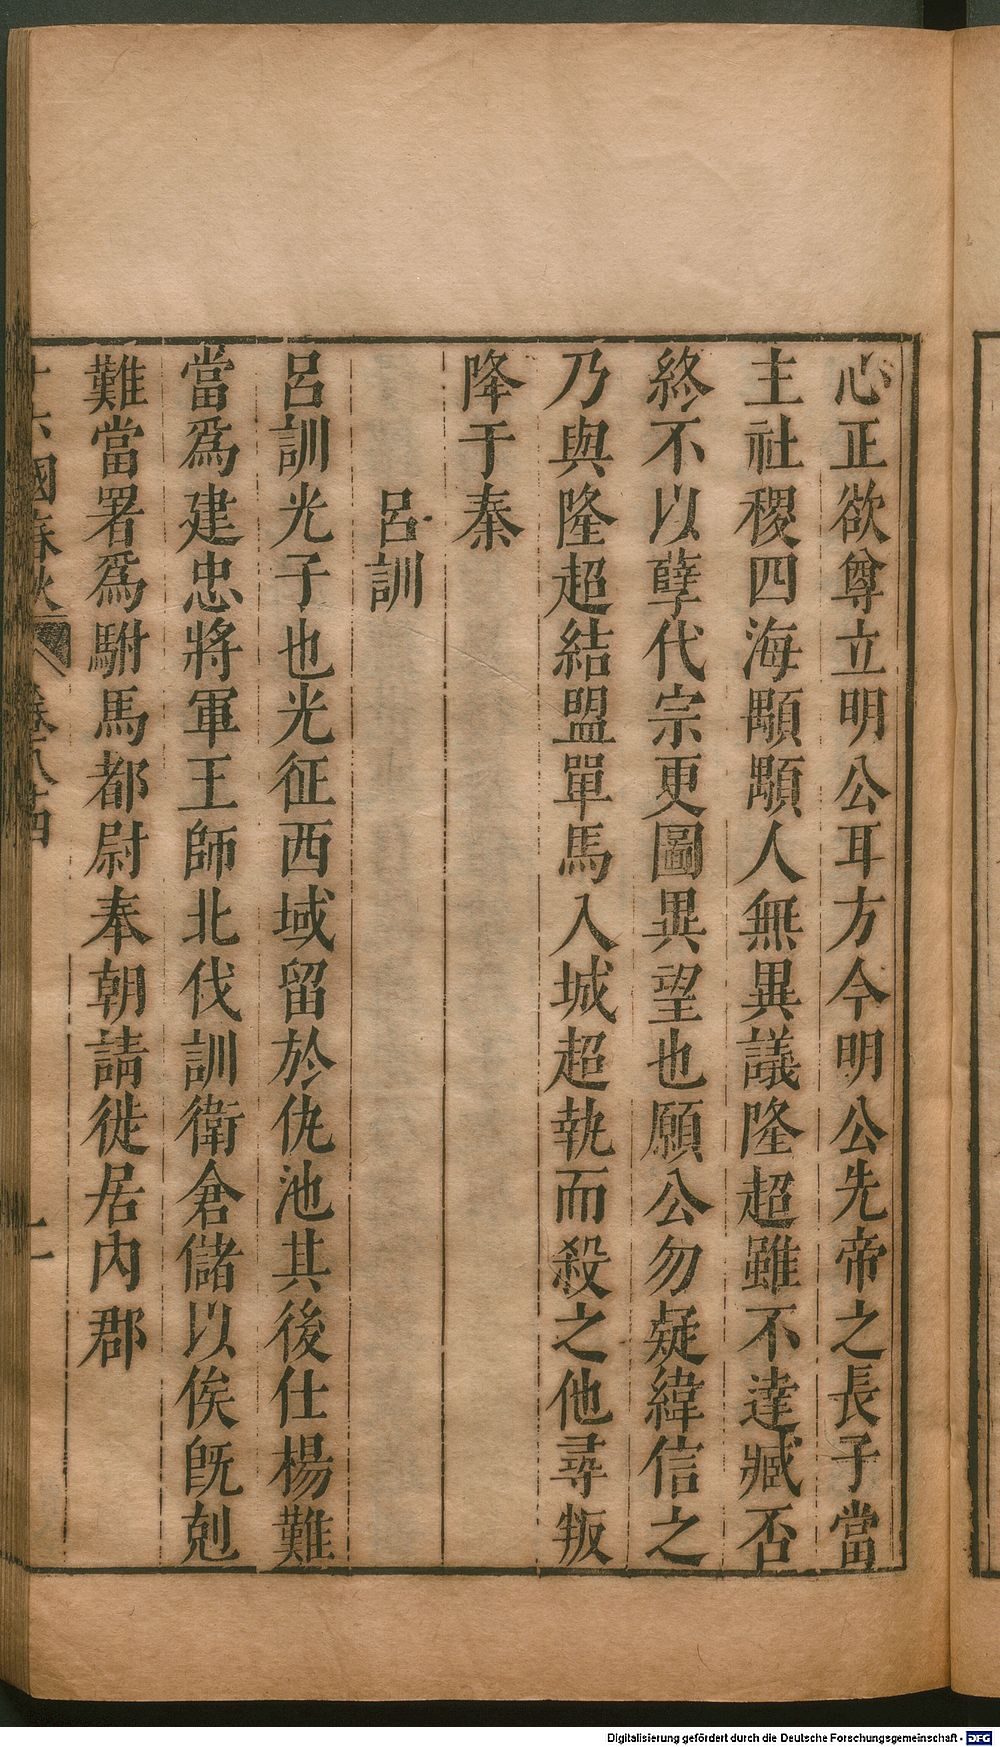 心正欲尊立明公耳方今明公先帝之長子當
主社稷四海顒顒人無異議隆超雖不達臧否
終不以孽代宗更圖異望也願公勿疑緯信之
乃與隆超結盟單馬入城超執而殺之他尋叛
降于秦
呂訓
呂訓光子也光征西域留於仇池其後仕楊難
當爲建忠將軍王師北伐訓衛倉儲以俟旣剋
難當署爲駙馬都尉奉朝請徙居內郡
十六國春秋 卷八十四
Digitalisierung gefördert durch die Deutsche Forschungsgemeinschaft - DFG